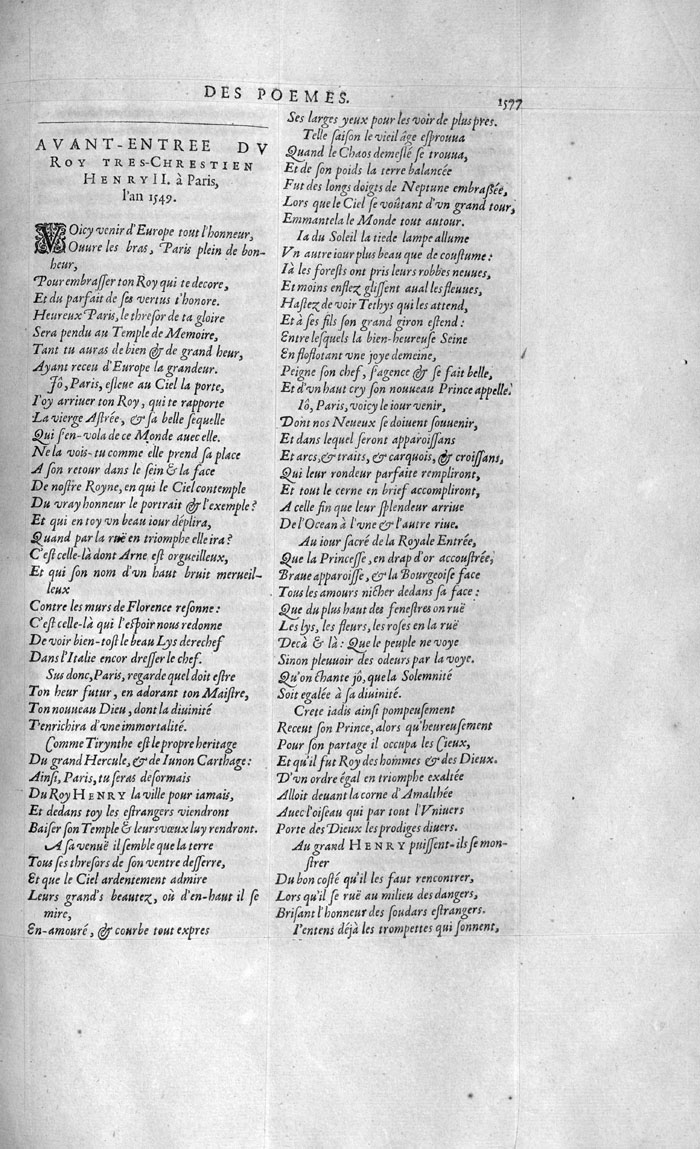 DES POEMES.
1577
AVANT-ENTREE DV
ROY TRES-CHRESTIEN
HENRY II. à Paris,
l'an 1549.
VOicy venir d'Europe tout l'honneur,
Ouure les bras, Paris plein de bon-
heur,
Pour embraſſer ton Roy qui te decore,
Et du parfait de ſes vertus t'honore.
Heureux Paris, le threſor de ta gloire
Sera pendu au Temple de Memoire,
Tant tu auras de bien & de grand heur,
Ayant receu d'Europe la grandeur.
Jô, Paris, eſleue au Ciel la porte,
I'oy arriuer ton Roy, qui te rapporte
La vierge Aſtrée, & ſa belle ſequelle
Qui s'en-vola de ce Monde auec elle.
Ne la vois-tu comme elle prend ſa place
A ſon retour dans le ſein & la face
De noſtre Royne, en qui le Ciel contemple
Du vray honneur le portrait & l'exemple?
Et qui en toy vn beau iour déplira,
Quand par la ruë en triomphe elle ira?
C'eſt celle-là dont Arne eſt orgueilleux,
Et qui ſon nom d'vn haut bruit merueil-
leux
Contre les murs de Florence reſonne:
C'eſt celle-là qui l'eſpoir nous redonne
De voir bien-toſt le beau Lys derechef
Dans l'Italie encor dreſſer le chef.
Sus donc, Paris, regarde quel doit eſtre
Ton heur futur, en adorant ton Maiſtre,
Ton nouueau Dieu, dont la diuinité
T'enrichira d'vne immortalité.
Comme Tirynthe eſt le propre heritage
Du grand Hercule, & de Iunon Carthage:
Ainſi, Paris, tu ſeras deſormais
Du Roy HENRY la ville pour iamais,
Et dedans toy les eſtrangers viendront
Baiſer ſon Temple & leurs vœux luy rendront.
A ſa venuë il ſemble que la terre
Tous ſes threſors de ſon ventre deſſerre,
Et que le Ciel ardentement admire
Leurs grand's beautez, où d'en-haut il ſe
mire,
En-amouré, & courbe tout expres
Ses larges yeux pour les voir de plus pres.
Telle ſaiſon le vieil âge eſprouua
Quand le Chaos demeſlé ſe trouua,
Et de ſon poids la terre balancée
Fut des longs doigts de Neptune embraſſée,
Lors que le Ciel ſe voûtant d'vn grand tour,
Emmantela le Monde tout autour.
Ia du Soleil la tiede lampe allume
Vn autre iour plus beau que de couſtume:
Ià les foreſts ont pris leurs robbes neuues,
Et moins enflez gliſſent aual les fleuues,
Haſtez de voir Tethys qui les attend,
Et à ſes fils ſon grand giron eſtend:
Entre leſquels la bien-heureuſe Seine
En floflotant vne joye demeine,
Peigne ſon chef, s'agence & ſe fait belle,
Et d'vn haut cry ſon nouueau Prince appelle.
Iô, Paris, voicy le iour venir,
Dont nos Neueux ſe doiuent ſouuenir,
Et dans lequel ſeront apparoiſſans
Et arcs, & traits, & carquois, & croiſſans,
Qui leur rondeur parfaite rempliront,
Et tout le cerne en brief accompliront,
A celle fin que leur ſplendeur arriue
De l'Ocean à l'vne & l'autre riue.
Au iour ſacré de la Royale Entrée,
Que la Princeſſe, en drap d'or accouſtrée,
Braue apparoiſſe, & la Bourgeoiſe face
Tous les amours nicher dedans ſa face:
Que du plus haut des feneſtres on ruë
Les lys, les fleurs, les roſes en la ruë
Deçà & là: Que le peuple ne voye
Sinon pleuuoir des odeurs par la voye.
Qu'on chante jô, que la Solemnité
Soit egalée à ſa diuinité.
Crete iadis ainſi pompeuſement
Receut ſon Prince, alors qu'heureuſement
Pour ſon partage il occupa les Cieux,
Et qu'il fut Roy des hommes & des Dieux.
D'vn ordre égal en triomphe exaltée
Alloit deuant la corne d'Amalthée
Auec l'oiſeau qui par tout l'Vniuers
Porte des Dieux les prodiges diuers.
Au grand HENRY puiſſent-ils ſe mon-
ſtrer
Du bon coſté qu'il les faut rencontrer,
Lors qu'il ſe ruë au milieu des dangers,
Briſant l'honneur des ſoudars eſtrangers.
I'entens déjà les trompettes qui ſonnent,